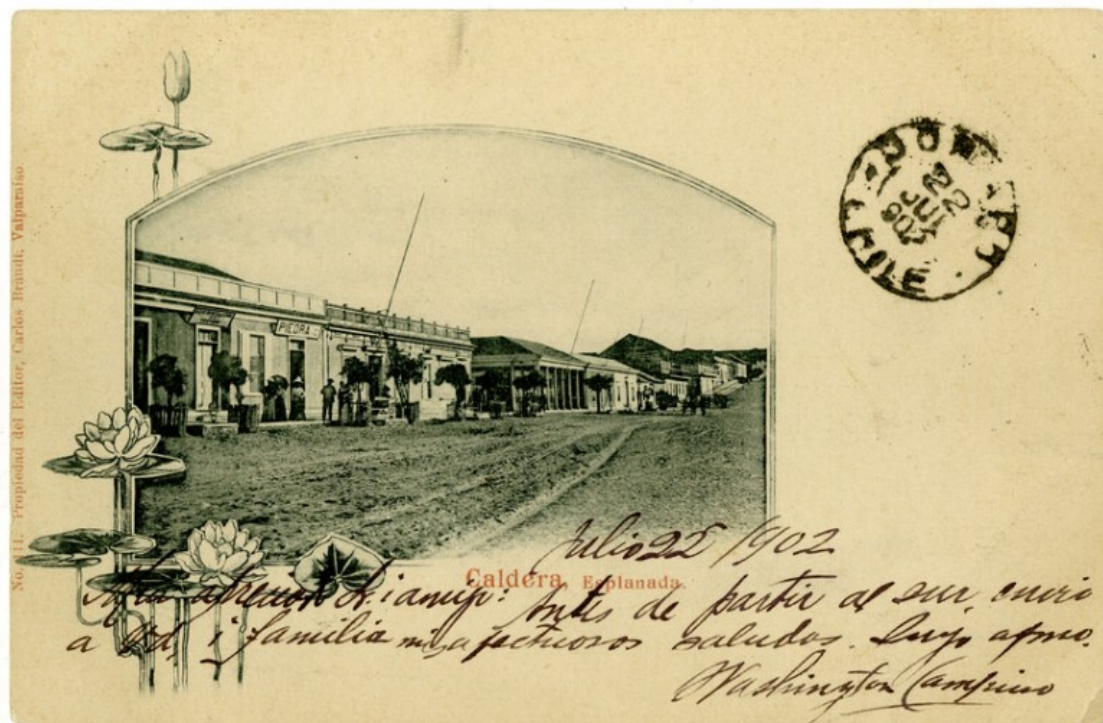 No. 111. Propiedad del Editor, Carlos Brandt, Valparaiso
PIEDRA
CHILE
22
JUL
902
Julio 22 1902
Caldera, Esplanada.
Antes de partir al sur, envio
a Ud. i familia mis afectuosos saludos. Suyo afmo.
Washington Campino